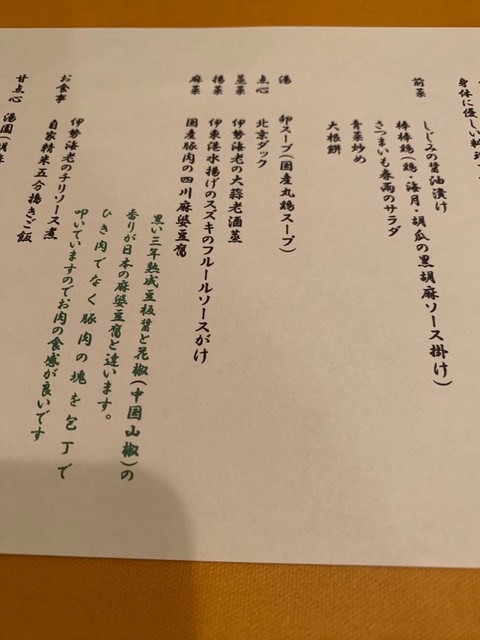 身体に優しい料理
前菜
しじみの醤油漬け
棒棒鶏(鶏・海月・胡瓜の黒胡麻ソース掛け)
さつまいも春雨のサラダ
青菜炒め
大根餅
湯 卵スープ(国産丸鶏スープ)
点心 北京ダック
蒸菜 伊勢海老の大蒜老酒蒸
揚菜 伊東港水揚げのスズキのフルールソースがけ
麻菜 国産豚肉の四川麻婆豆腐
黒い三年熟成豆板醤と花椒(中国山椒)の
香りが日本の麻婆豆腐と違います。
ひき肉でなく豚肉の塊を包丁で
叩いていますのでお肉の食感が良いです
お食事 伊勢海老のチリソース煮
自家精米五分搗きご飯
甘点心 湯圓(胡麻